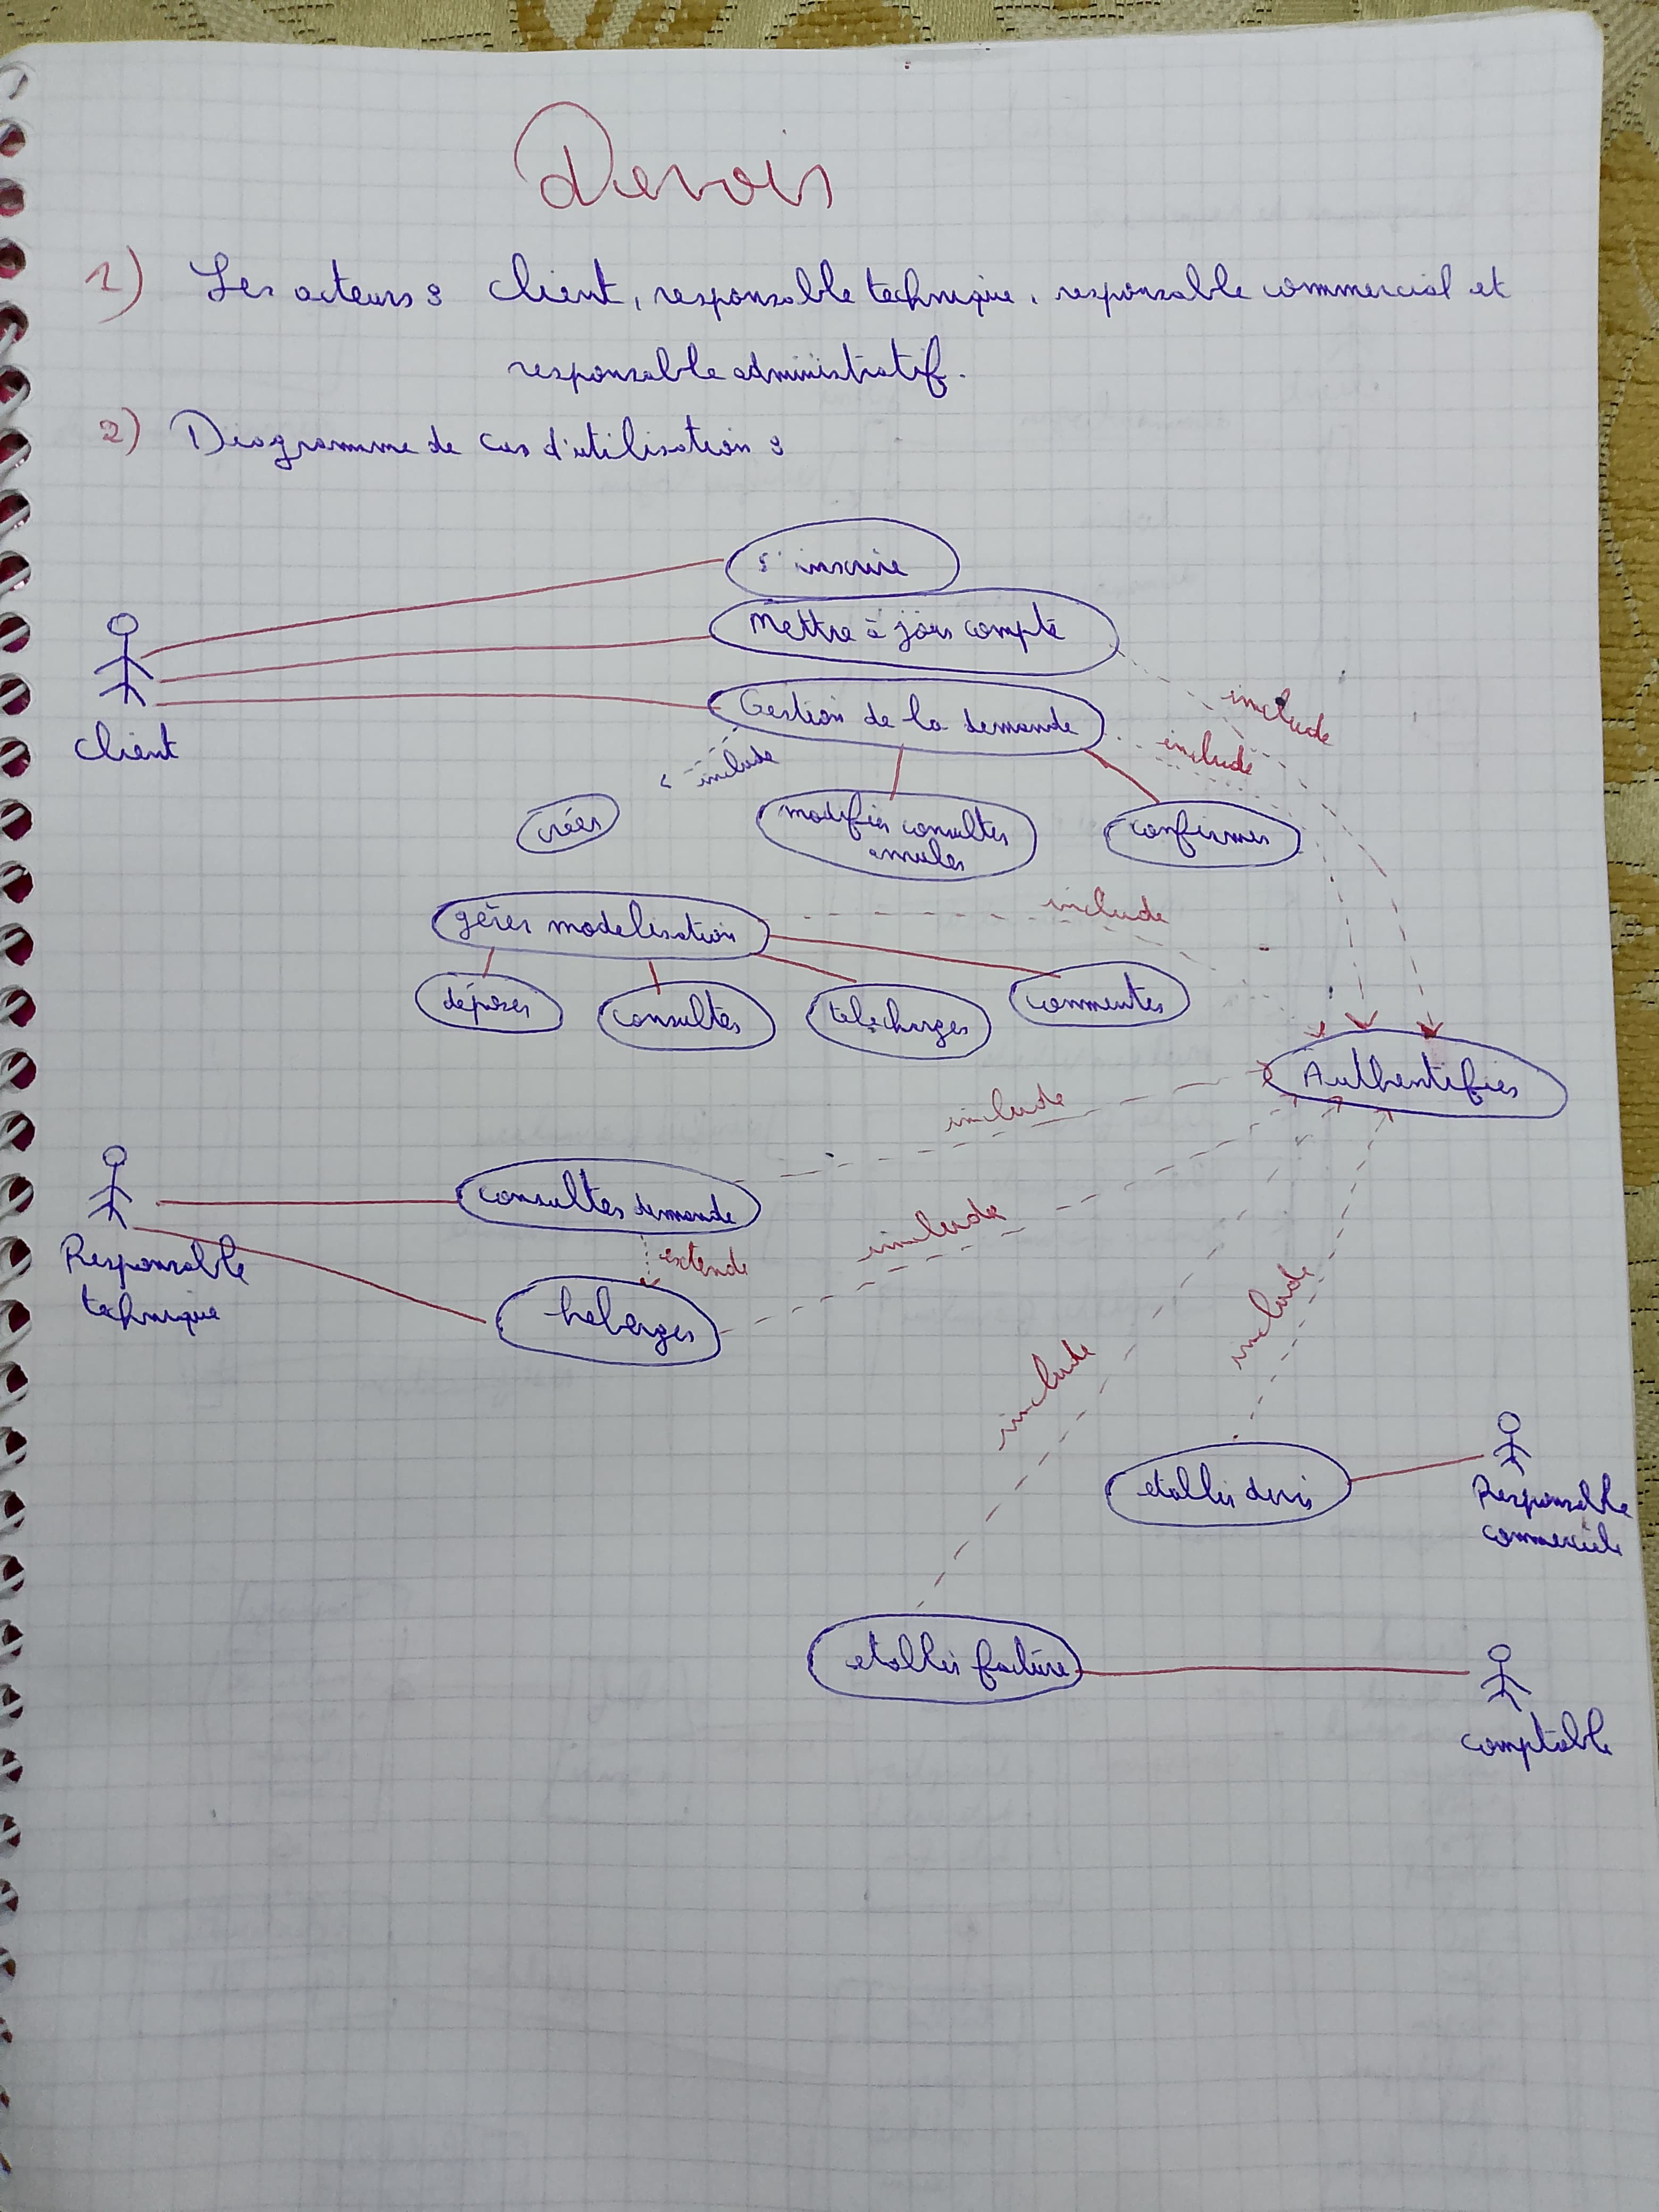 Devoir
1) Les acteurs : client, responsable technique, responsable commercial et
responsable administratif.
2) Diagramme de cas d'utilisation :
s'inscrire
Mettre à jour compte
Gestion de la demande
include
include
include
client
créer
modifier consulter
annuler
confirmer
gérer modelisation
include
déposer
consulter
telecharger
commenter
Authentifier
include
consulter demande
Responsable
technique
extende
include
heberger
include
include
etablir devis
Responsable
commerciale
etablir facture
comptable